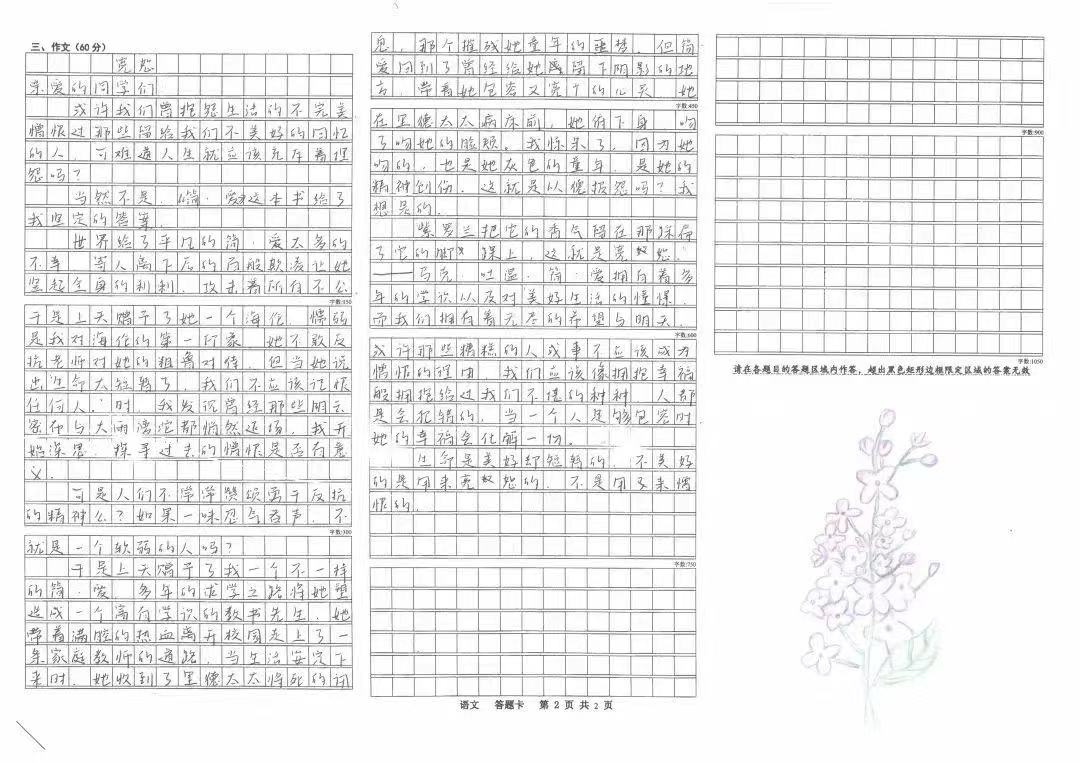 三、作文(60分)
宽恕
亲爱的同学们
或许我们曾抱怨生活的不完美
憎恨过那些留给我们不美好的回忆
的人，可难道人生就应该充斥着埋
怨吗？
当然不是，《简·爱》这本书给了
我坚定的答案。
世界给了平凡的简·爱太多的
不幸，寄人离下后的百般欺凌让她
竖起全身的利刺，攻击着所有不公
字数:150
于是上天赠予了她一个海伦，懦弱
是我对海伦的第一印象，她不敢反
抗老师对她的粗鲁对待，但当她说
出“生命太短暂了，我们不应该记恨
任何人”时，我发沉曾经那些阴云
密布与大雨滂沱都悄然退场，我开
始深思，探寻过去的憎恨是否有意
义。
可是人们不常常赞颂离于反抗
的精神么？如果一味忍气吞声，不
字数:300
就是一个软弱的人吗？
于是上天赠予了我一个不一样
的简·爱，多年的求学之路将她塑
造成一个富有学识的教书先生，她
带着满腔的热血离开校园走上了一
条家庭教师的道路，当生活安定下
来时，她收到了里德太太将死的讯
息，那个摧残她童年的噩梦，但简
爱回到了曾经给她留下阴影的地
方，带着她包容又宽广的心灵，她
字数:450
在里德太太病床前，她俯下身，吻
了吻她的脸颊。我惊呆了，因为她
吻的，也是她灰色的童年，是她的
精神创伤，这就是以德报怨吗？我
想是的。
紫罗兰把它的香气留在那踩得
了它的脚踝上，这就是宽恕。
——马克·吐温，简·爱拥有着多
年的学识以及对美好生活的憧憬，
而我们拥有着无尽的希望与明天，
字数:600
或许那些糟糕的人或事不应该成为
憎恨的理由，我们应该像拥抱幸福
般拥抱给过我们不堪的种种，人都
是会犯错的，当一个人足够包容时
她的幸福会化解一切。
生命是美好却短暂的，不美好
的是用来宽恕的，不是用来憎
恨的。
字数:750
语文 答题卡 第 2 页 共 2 页
字数:900
字数:1050
请在各题目的答题区域内作答，超出黑色矩形边框限定区域的答案无效